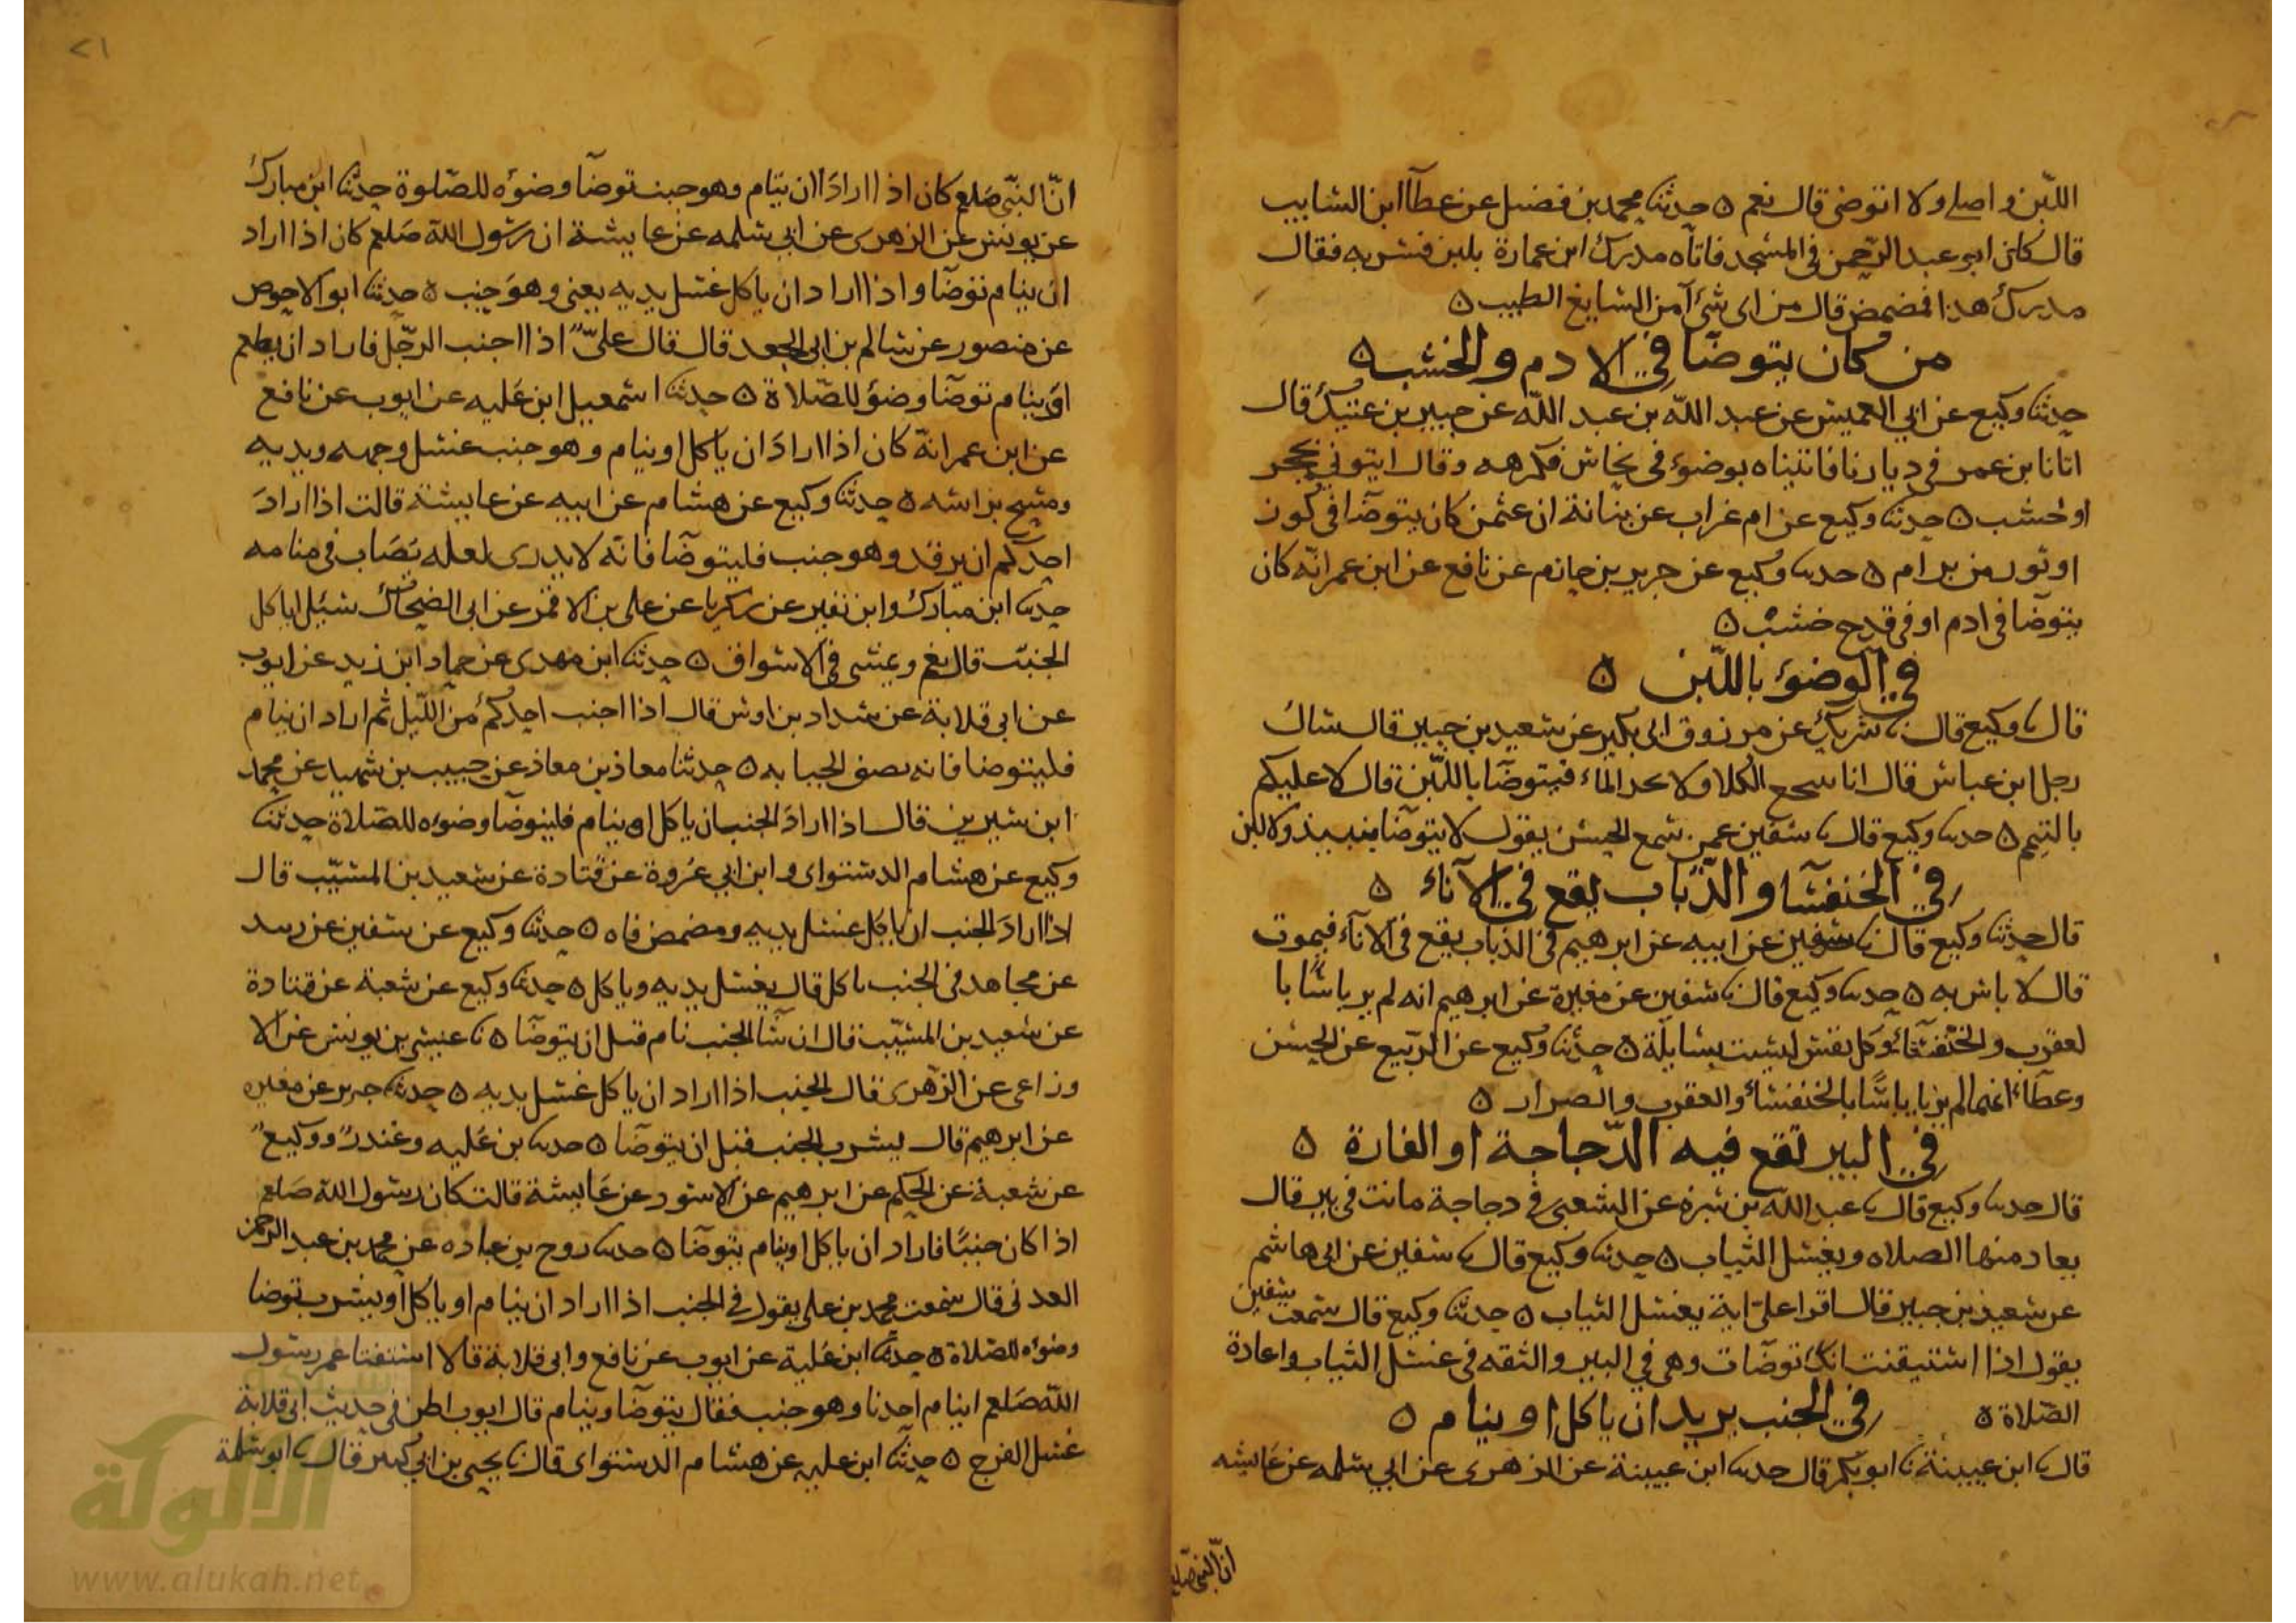 اللبن واصلى ولا اتوضى قال نعم ۵ حدثنا محمد بن فضيل عن عطآ ابن السايب
قال كان ابو عبد الرحمن فى المسجد فاتاه مدرك ابن عمارة بلبن فشربه فقال
مدرك هذا فمضمض قال من اى شئ آمن السايغ الطيب ۵
من كان يتوضا في الادم والخشب ۵
حدثنا وكيع عن ابي العميس عن عبد الله بن عبد الله عن جبير بن عتيك قال
اتانا ابن عمر فى ديارنا فاتيناه بوضوء فى نحاس فكرهه وقال ايتوني بحجر
او خشب ۵ حدثنا وكيع عن ام غراب عن بنانة ان عثمن كان يتوضا فى كوز
او تور من برام ۵ حدثنا وكيع عن جرير بن حازم عن نافع عن ابن عمر انه كان
يتوضا فى ادم او فى قدح خشب ۵
في الوضوء باللبن ۵
قال نا وكيع قال نا شريك عن مرزوق ابى بكير عن سعيد بن جبير قال سال
رجل ابن عباس قال انا الكلا ولا نجد الماء فيتوضا باللبن قال لا عليكم
بالتيمم ۵ حدثنا وكيع قال نا سفين عمن سمع الحسن يقول لا يتوضا بنبيذ ولا لبن
في الخنفسا والذباب يقع في الآناء ۵
قال حدثنا وكيع قال نا سفين عن ابيه عن ابرهيم فى الذباب يقع فى الانآء فيموت
قال لا باس به ۵ حدثنا وكيع قال نا سفين عن مغيرة عن ابرهيم انه لم ير باسا با
لعقرب والخنفسآء وكل نفس ليست بسايلة ۵ حدثنا وكيع عن الربيع عن الحسن
وعطآء انهما لم يريا باسا بالخنفسآء والعقرب والصرار ۵
في البير تقع فيه الدجاجة او الفارة ۵
قال حدثنا وكيع قال نا عبد الله بن شبرة عن الشعبى فى دجاجة ماتت فى بير قال
يعاد منها الصلاه ويغسل الثياب ۵ حدثنا وكيع قال نا سفين عن ابى هاشم
عن سعيد بن جبير قال اقرا على اية بغسل الثياب ۵ حدثنا وكيع قال سمعت سفين
يقول اذا استيقنت انك توضات وهى في البير والثقه فى غسل الثياب واعادة
الصلاة ۵ في الجنب يريد ان ياكل او ينام ۵
قال نا ابن عيينة نا ابو بكر قال حدثنا ابن عيينة عن الزهرى عن ابي سلمه عن عايشه
ان النبي صلعم
٢١
ان النبي صلعم كان اذا اراد ان ينام وهو جنب توضا وضوءه للصلوة حدثنا ابن مبارك
عن يونس عن الزهرى عن ابي سلمه عن عايشة ان رسول الله صلعم كان اذا اراد
ان ينام توضا واذا اراد ان ياكل غسل يديه يعنى وهو جنب ۵ حدثنا ابو الاحوص
عن منصور عن سالم بن ابي الجعد قال قال علي اذا اجنب الرجل فاراد ان يطعم
او ينام توضا وضوء للصلاة ۵ حدثنا اسمعيل ابن عليه عن ايوب عن نافع
عن ابن عمر انه كان اذا اراد ان ياكل او ينام وهو جنب غسل وجهه ويديه
ومسح براسه ۵ حدثنا وكيع عن هشام عن ابيه عن عايشة قالت اذا اراد
احدكم ان يرقد وهو جنب فليتوضا فانه لا يدرى لعله يصاب فى منامه
حدثنا ابن مبارك وابن نمير عن زكريا عن على بن الاقمر عن ابى الضحاك سئل اياكل
الجنب قال نعم ويمشى فى الاسواق ۵ حدثنا ابن مهدى عن حماد ابن زيد عن ايوب
عن ابى قلابة عن شداد بن اوس قال اذا اجنب احدكم من الليل ثم اراد ان ينام
فليتوضا فانه نصف الجنابه ۵ حدثنا معاذ بن معاذ عن حبيب بن شهيد عن محمد
ابن سيرين قال اذا اراد الجنب ان ياكل او ينام فليتوضا وضوءه للصلاة حدثنا
وكيع عن هشام الدستواى وابن ابي عروة عن قتادة عن سعيد بن المسيب قال
اذا اراد الجنب ان ياكل غسل يديه ومضمض فاه ۵ حدثنا وكيع عن سفين عن زبيد
عن مجاهد فى الجنب ياكل قال يغسل يديه وياكل ۵ حدثنا وكيع عن شعبة عن قتادة
عن سعيد بن المسيب قال ان شآ الجنب نام قبل ان يتوضا ۵ نا عيسى بن يونس عن الا
وزاعى عن الزهرى قال الجنب اذا اراد ان ياكل غسل يديه ۵ حدثنا جرير عن مغيره
عن ابرهيم قال يشرب الجنب قبل ان يتوضا ۵ حدثنا بن عليه وغندر ووكيع
عن شعبة عن الحكم عن ابرهيم عن الاسود عن عايشة قالت كان رسول الله صلعم
اذا كان جنبا فاراد ان ياكل او ينام يتوضا ۵ حدثنا روح بن عباده عن محمد بن عبد الرحمن
العدنى قال سمعت محمد بن على يقول فى الجنب اذا اراد ان ينام او ياكل او يشرب توضا
وضوءه للصلاة ۵ حدثنا ابن علية عن ايوب عن نافع وابى قلابة قالا استفتا عمر رسول
الله صلعم اينام احدنا وهو جنب فقال يتوضا وينام قال ايوب اظن فى حديث ابى قلابة
غسل الفرج ۵ حدثنا ابن عليه عن هشام الدستواى قال نا يحيى بن ابي كثير قال نا ابو سلمة
شبكة
الألوكة
www.alukah.net